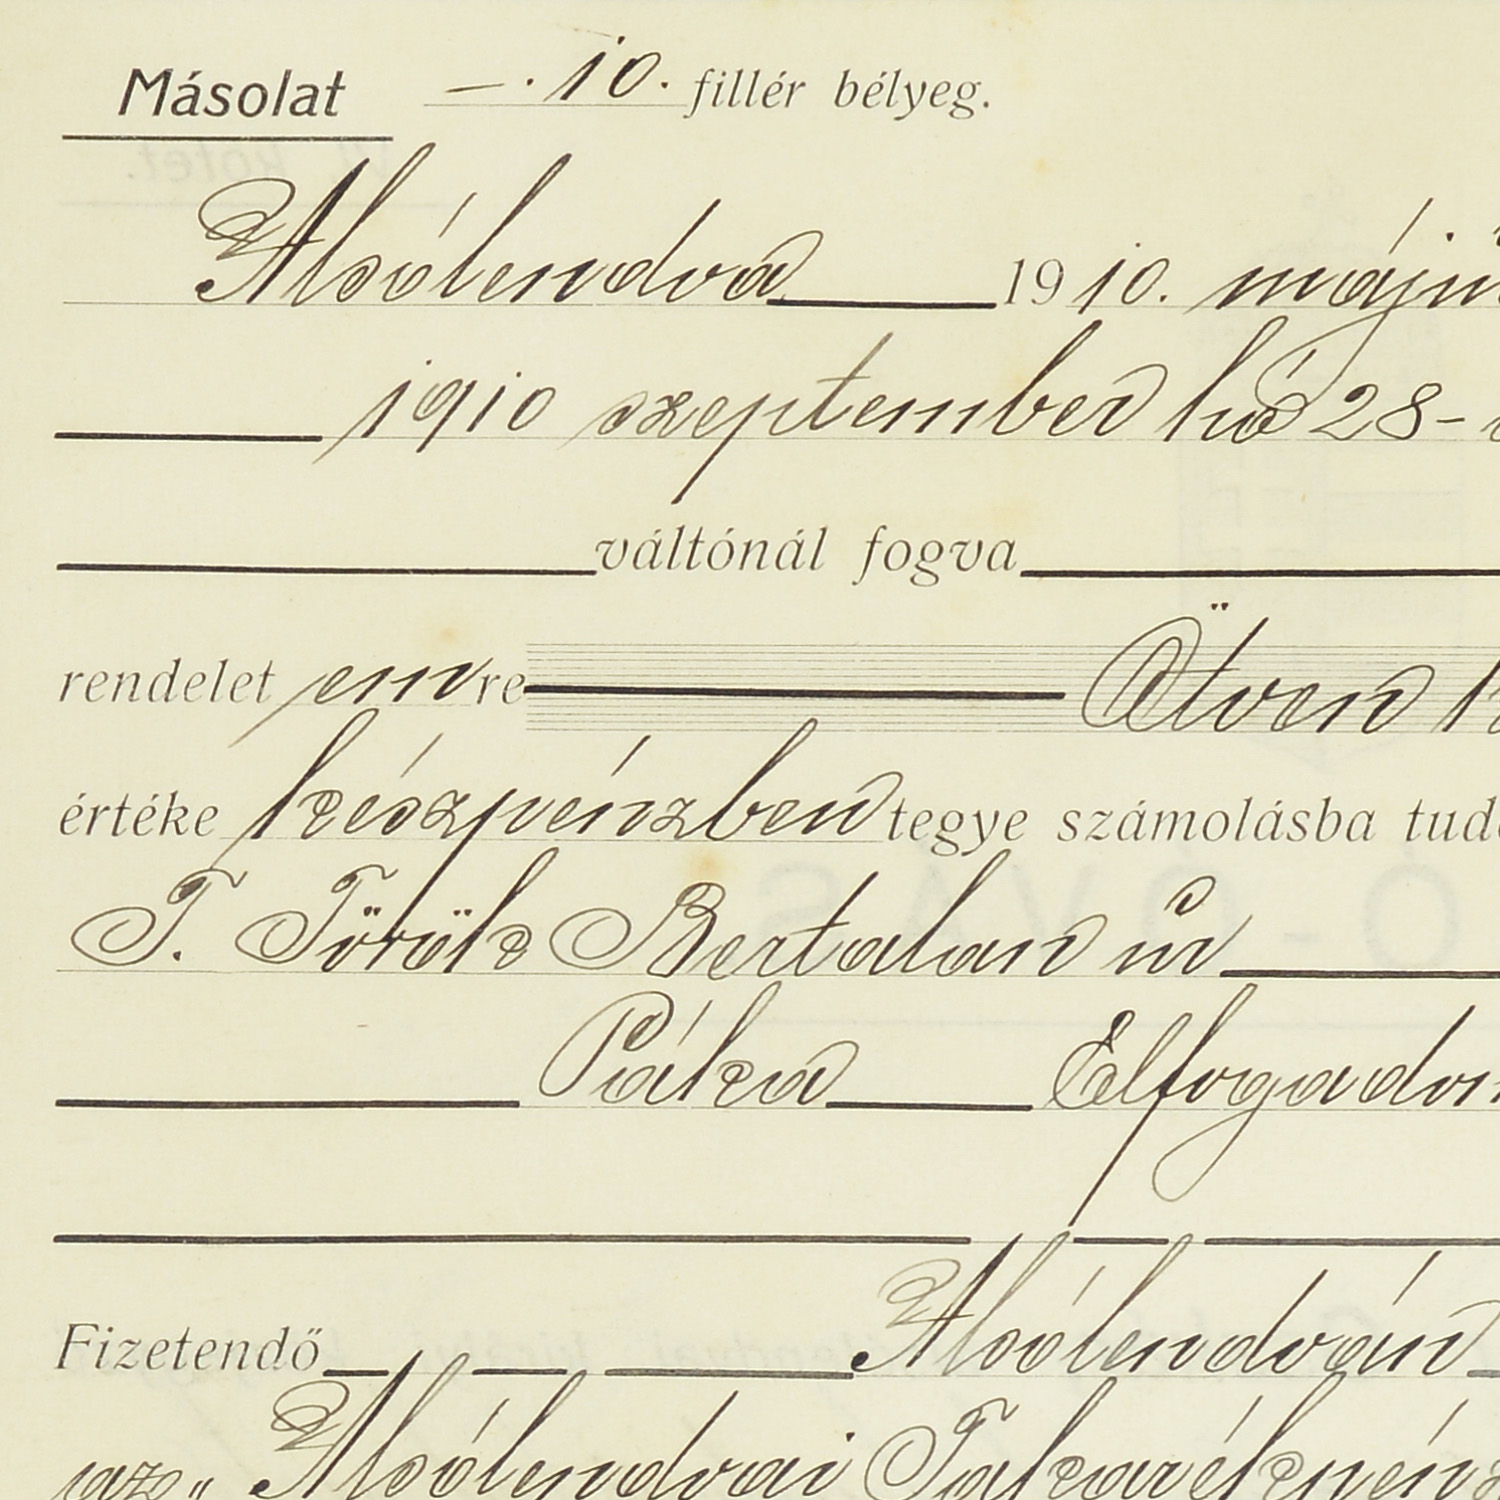 Másolat —.10. fillér bélyeg.
Alsólendva 1910. máju
1910 szeptember hó 28-
váltónál fogva
rendelet enre Ötven k
értéke készpénzben tegye számolásba tudó
T. Török Bertalan úr
Páka Elfogadom
Fizetendő Alsólendván
az „Alsólendvai Takarékpénz